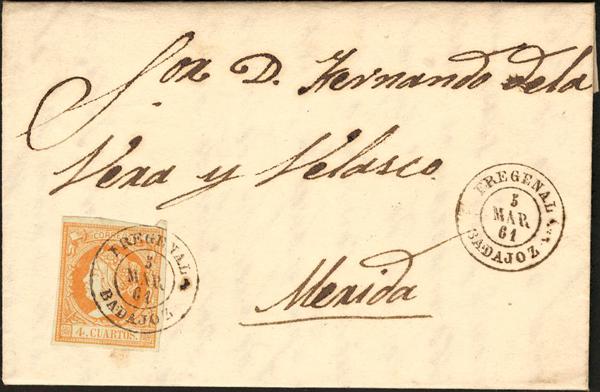 Sor D. Fernando de la
Vera y Velasco.
Merida
FREGENAL
5
MAR
61
BADAJOZ
CORREOS
FREGENAL
5
MAR
61
BADAJOZ
4 CUARTOS.